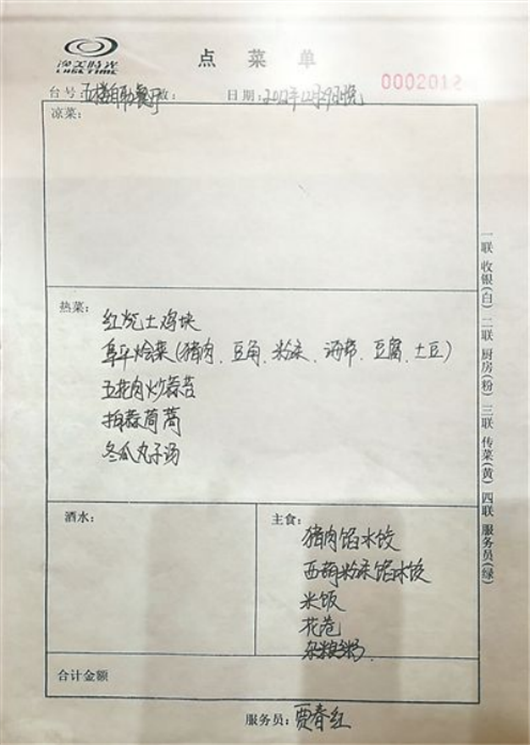 渔美时光
LUSETIME
点菜单
0002012
台号:五楼自助餐厅
日期:2012年12月29日晚
凉菜:
热菜:
红烧土鸡块
阜平烩菜(猪肉、豆角、粉条、海带、豆腐、土豆)
五花肉炒蒜苔
拌蒜茼蒿
冬瓜丸子汤
酒水:
主食:
猪肉馅水饺
西葫粉条馅水饺
米饭
花卷
杂粮粥
合计金额
服务员:贾春红
一联 收银(白) 二联 厨房(粉) 三联 传菜(黄) 四联 服务员(绿)